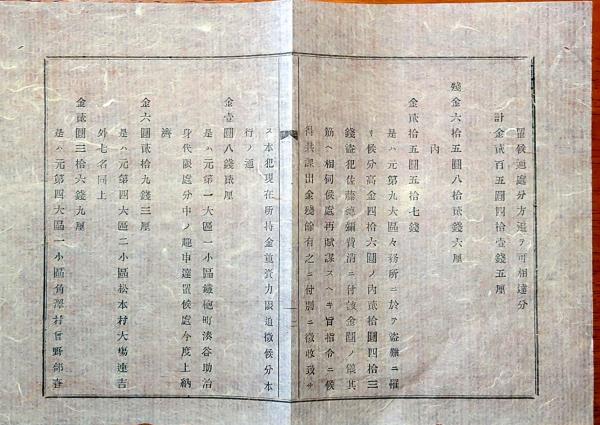 置候迚處分方追テ可相達分
計金貳百五圓四拾壹錢五厘
殘金六拾五圓八拾貳錢六厘
內
金貳拾五圓五拾七錢
是ハ元第九大區々務所ニ於テ盜難ニ罹
リ候分高金四拾六圓ノ內貳拾圓四拾三
錢盜犯佐藤 費消ニ付該金圓ノ儀其
筋ヘ相伺候處再賦課スヘキ旨指令ニ候
得共課出金殘餘有之ニ付別ニ徵收致サ
ス本犯現在所持金並資力限追徵候分本
行ノ通
金壹圓八錢貳厘
是ハ元第一大區一小區鐵砲町湊谷助治
身代限處分中ノ趣申達置候處今度上納
濟
金六圓貳拾九錢三厘
是ハ元第四大區二小區松本村大場連吉
外七名同上
金貳圓三拾六錢九厘
是ハ元第四大區一小區角澤村 野